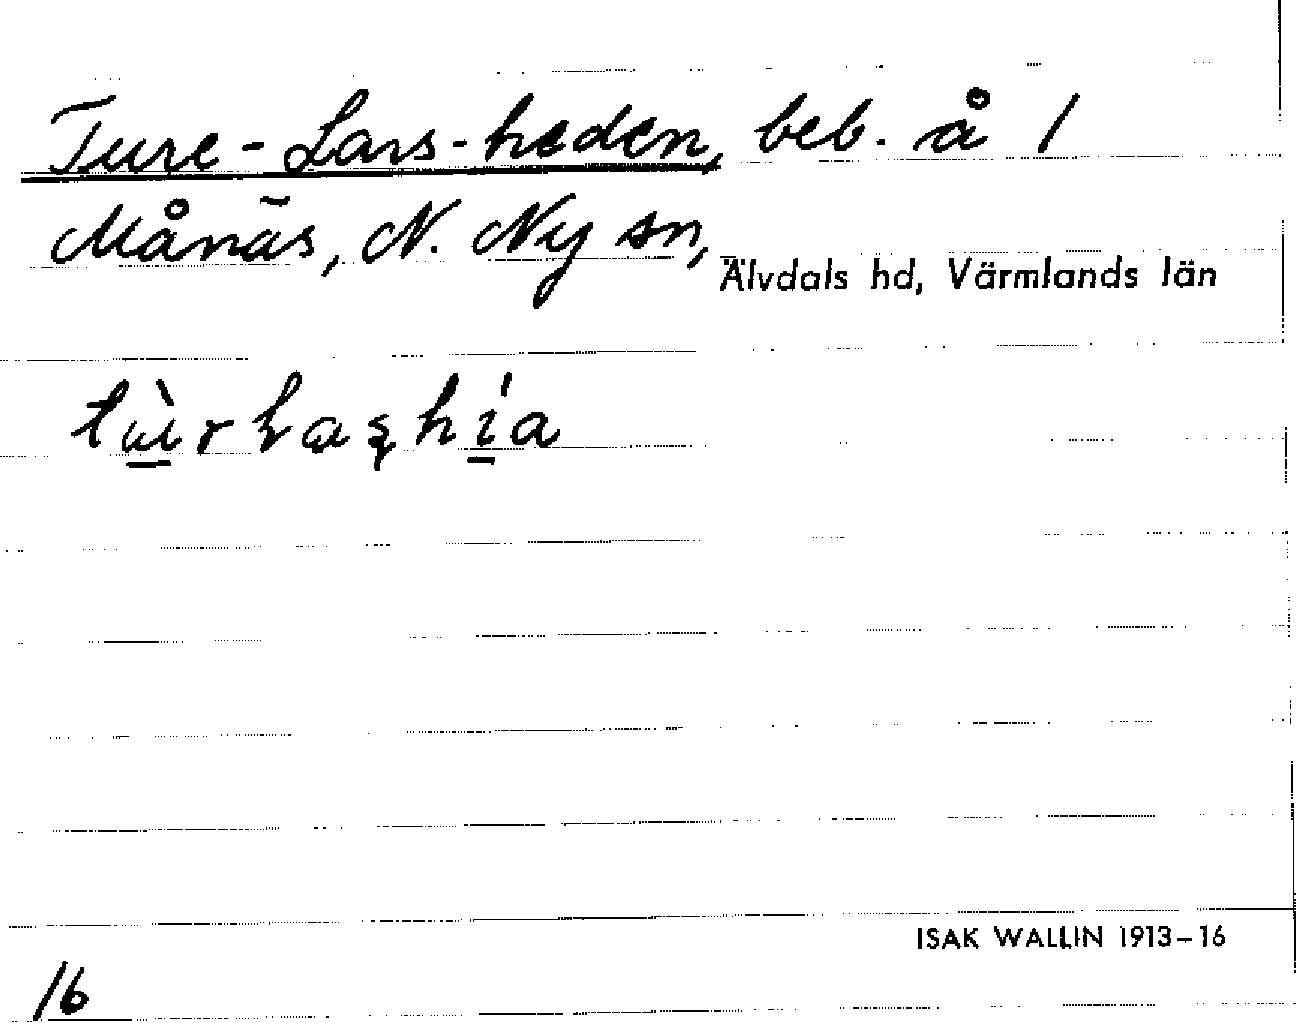 Ture-Lars-heden, beb. å /
Månäs, N. Ny sn,
Älvdals hd, Värmlands län
ISAK WALLIN 1913–16
16